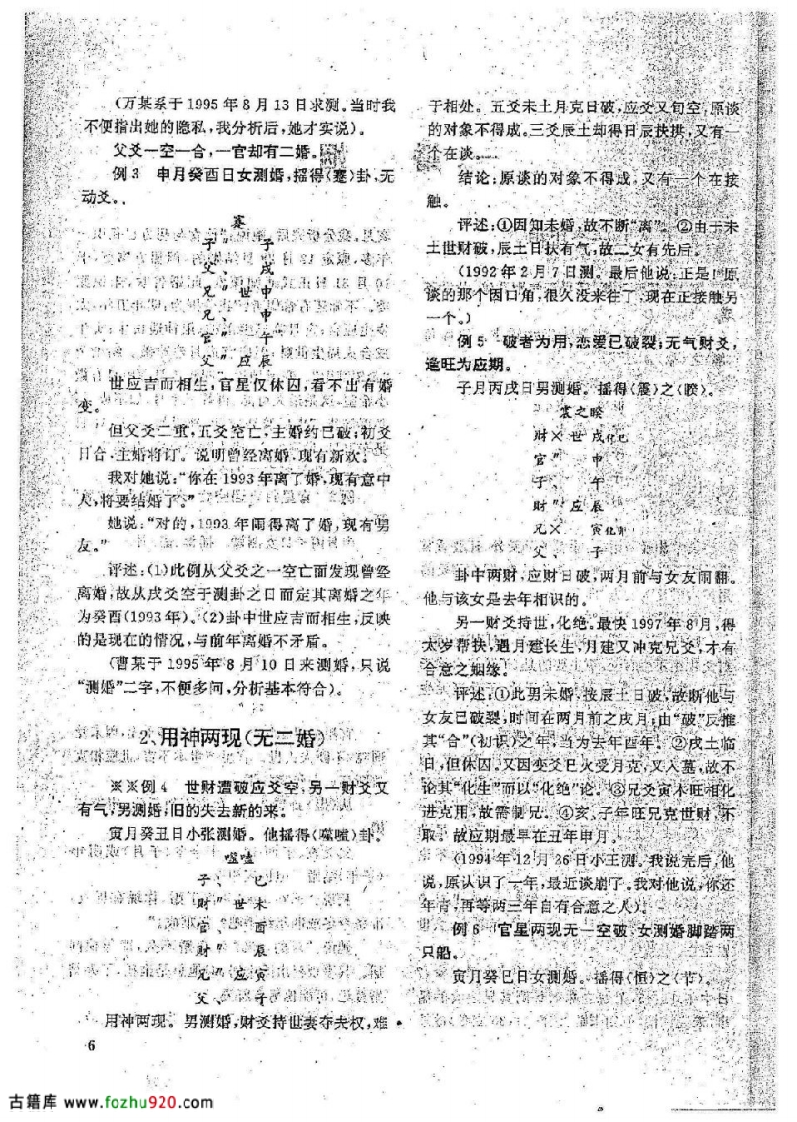 (万某系于1995年8月13日求测。当时我
不便指出她的隐私,我分析后,她才实说)。
父爻一空一合,一官却有二婚。
例3 申月癸酉日女测婚,摇得(蹇)卦,无
动爻。
蹇
子〃 子
父、 戌
兄〃世 申
兄、 申
官〃 午
父〃应 辰
世应吉而相生,官星仅休囚,看不出有婚
变。
但父爻二重,五爻空亡,主婚约已破;初爻
日合,主婚将订。说明曾经离婚,现有新欢。
我对她说:“你在1993年离了婚,现有意中
人,将要结婚了。”
她说:“对的,1993年闹得离了婚,现有男
友。”
评述:(1)此例从父爻之一空亡而发现曾经
离婚,故从戌爻空于测卦之日而定其离婚之年
为癸酉(1993年)。(2)卦中世应吉而相生,反映
的是现在的情况,与前年离婚不矛盾。
(曹某于1995年8月10日来测婚,只说
“测婚”二字,不便多问,分析基本符合)。
2、用神两现(无二婚)
※※例4 世财遭破应爻空,另一财爻又
有气,男测婚,旧的失去新的来。
寅月癸丑日小张测婚。他摇得(噬嗑)卦。
噬嗑
子、 巳
财〃世 未
官、 酉
财〃 辰
兄〃应 寅
父、 子
用神两现。男测婚,财爻持世妻夺夫权,难
6
于相处。五爻未土月克日破,应爻又旬空,原谈
的对象不得成。三爻辰土却得日辰扶拱,又有一
个在谈。
结论:原谈的对象不得成,又有一个在接
触。
评述:①因知未婚,故不断“离”。②由于未
土世财破,辰土日扶有气,故二女有先后。
(1992年2月7日测。最后他说:正是!原
谈的那个因口角,很久没来往了,现在正接触另
一个。)
例5 破者为用,恋爱已破裂;无气财爻,
逢旺为应期。
子月丙戌日男测婚。摇得(震)之(睽)。
震之睽
财×世戌化巳
官〃 申
子、 午
财〃应 辰
兄× 寅化卯
父、 子
卦中两财,应财日破,两月前与女友闹翻。
他与该女是去年相识的。
另一财爻持世,化绝。最快1997年8月,得
太岁帮扶,遇月建长生,月建又冲克兄爻,才有
合意之姻缘。
评述:①此男未婚,按辰土日破,故断他与
女友已破裂,时间在两月前之戌月;由“破”反推
其“合”(初识)之年,当为去年酉年。②戌土临
日,但休囚,又因变爻巳火受月克,又入墓,故不
论其“化生”而以“化绝”论。③兄爻寅木旺相化
进克用,故需制兄。④亥、子年旺兄克世财,不
取。故应期最早在丑年申月。
(1994年12月26日小王测。我说完后,他
说,原认识了一年,最近谈崩了。我对他说,你还
年青,再等两三年自有合意之人)。
例6 官星两现无一空破,女测婚脚踏两
只船。
寅月癸巳日女测婚。摇得(恒)之(节)。
古籍库 www.fozhu920.com